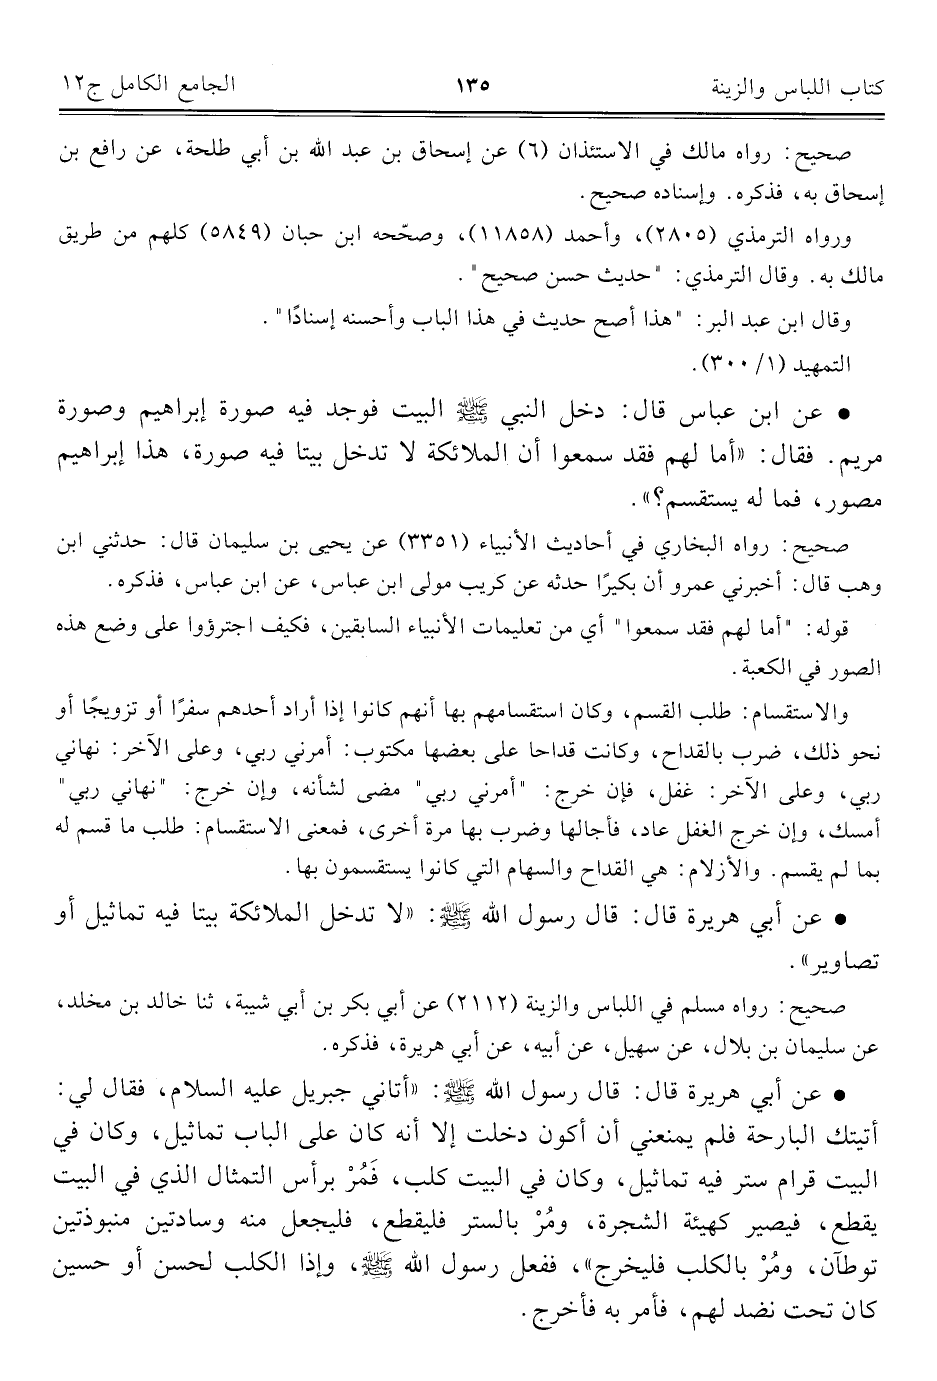 كتاب اللباس والزينة ١٣٥ الجامع الكامل ج١٢
صحيح: رواه مالك في الاستئذان (٦) عن إسحاق بن عبد الله بن أبي طلحة، عن رافع بن
إسحاق به، فذكره. وإسناده صحيح.
ورواه الترمذي (٢٨٠٥)، وأحمد (١١٨٥٨)، وصحّحه ابن حبان (٥٨٤٩) كلهم من طريق
مالك به. وقال الترمذي: "حديث حسن صحيح".
وقال ابن عبد البر: "هذا أصح حديث في هذا الباب وأحسنه إسنادًا".
التمهيد (١/ ٣٠٠).
• عن ابن عباس قال: دخل النبي ﷺ البيت فوجد فيه صورة إبراهيم وصورة
مريم. فقال: «أما لهم فقد سمعوا أن الملائكة لا تدخل بيتا فيه صورة، هذا إبراهيم
مصور، فما له يستقسم؟».
صحيح: رواه البخاري في أحاديث الأنبياء (٣٣٥١) عن يحيى بن سليمان قال: حدثني ابن
وهب قال: أخبرني عمرو أن بكيرًا حدثه عن كريب مولى ابن عباس، عن ابن عباس، فذكره.
قوله: "أما لهم فقد سمعوا" أي من تعليمات الأنبياء السابقين، فكيف اجترؤوا على وضع هذه
الصور في الكعبة.
والاستقسام: طلب القسم، وكان استقسامهم بها أنهم كانوا إذا أراد أحدهم سفرًا أو تزويجًا أو
نحو ذلك، ضرب بالقداح، وكانت قداحا على بعضها مكتوب: أمرني ربي، وعلى الآخر: نهاني
ربي، وعلى الآخر: غفل، فإن خرج: "أمرني ربي" مضى لشأنه، وإن خرج: "نهاني ربي"
أمسك، وإن خرج الغفل عاد، فأجالها وضرب بها مرة أخرى، فمعنى الاستقسام: طلب ما قسم له
بما لم يقسم. والأزلام: هي القداح والسهام التي كانوا يستقسمون بها.
• عن أبي هريرة قال: قال رسول الله ﷺ: «لا تدخل الملائكة بيتا فيه تماثيل أو
تصاوير».
صحيح: رواه مسلم في اللباس والزينة (٢١١٢) عن أبي بكر بن أبي شيبة، ثنا خالد بن مخلد،
عن سليمان بن بلال، عن سهيل، عن أبيه، عن أبي هريرة، فذكره.
• عن أبي هريرة قال: قال رسول الله ﷺ: «أتاني جبريل عليه السلام، فقال لي:
أتيتك البارحة فلم يمنعني أن أكون دخلت إلا أنه كان على الباب تماثيل، وكان في
البيت قرام ستر فيه تماثيل، وكان في البيت كلب، فَمُرْ برأس التمثال الذي في البيت
يقطع، فيصير كهيئة الشجرة، ومُرْ بالستر فليقطع، فليجعل منه وسادتين منبوذتين
توطآن، ومُرْ بالكلب فليخرج»، ففعل رسول الله ﷺ، وإذا الكلب لحسن أو حسين
كان تحت نضد لهم، فأمر به فأخرج.